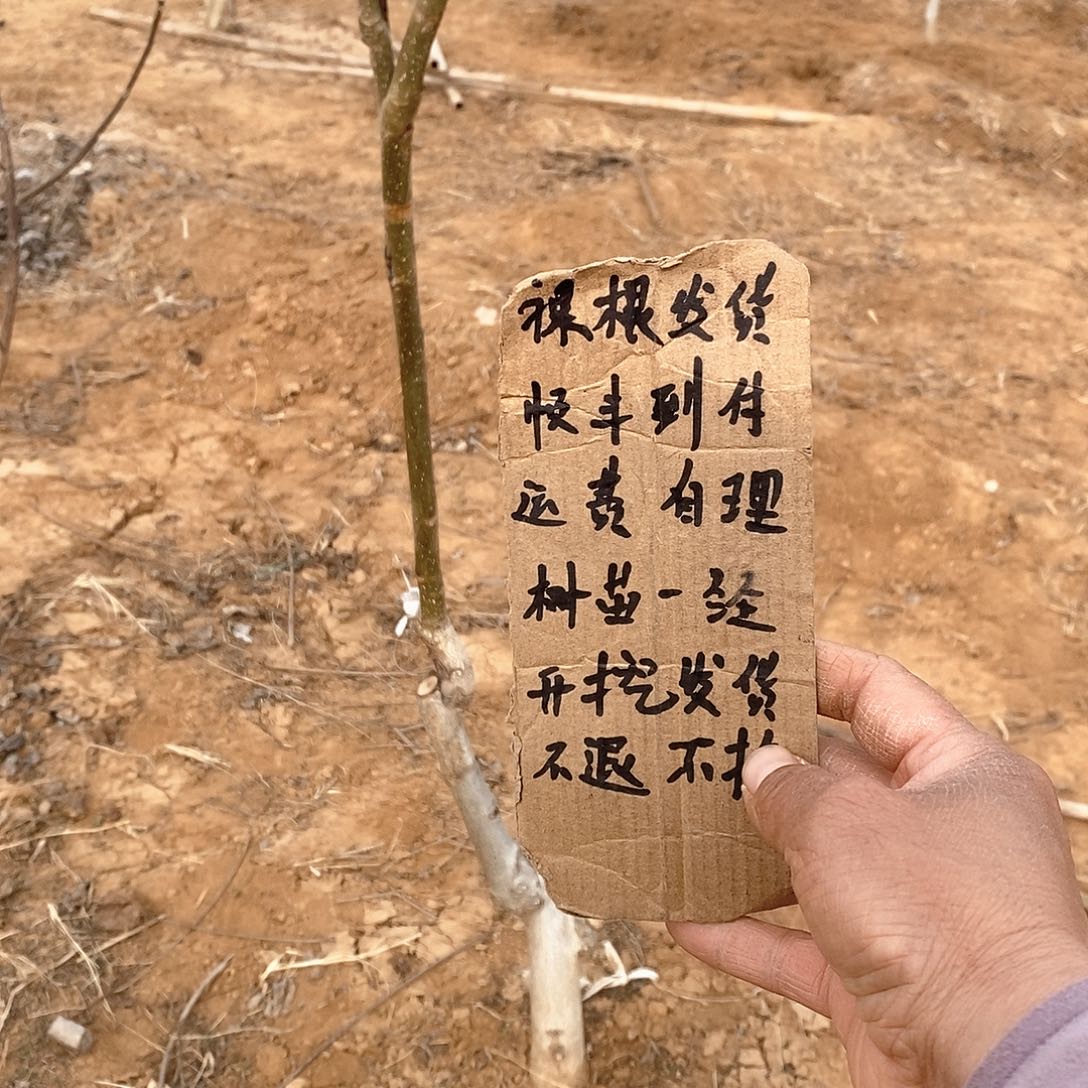 裸根发货
顺丰到付
运费自理
树苗一经
开挖发货
不退不